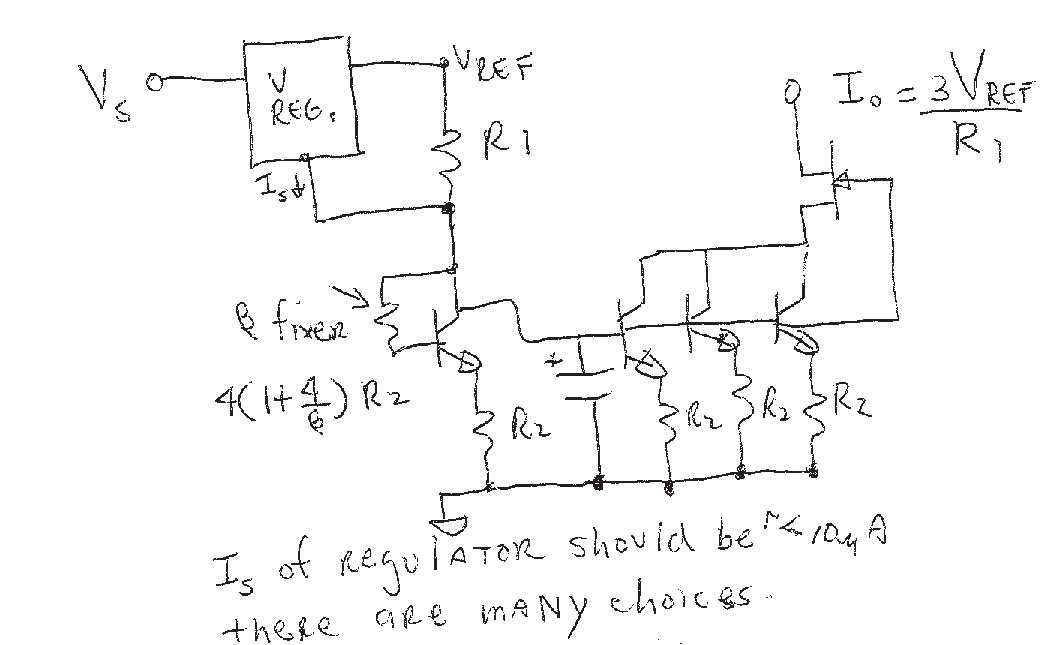 Vs
V
REG.
VREF
R1
Is
Io = 3VREF
R1
β fixer
4(1+4/β) R2
R2
+
R2
R2
R2
Is of REgulATOR should be
there are mANY choices.